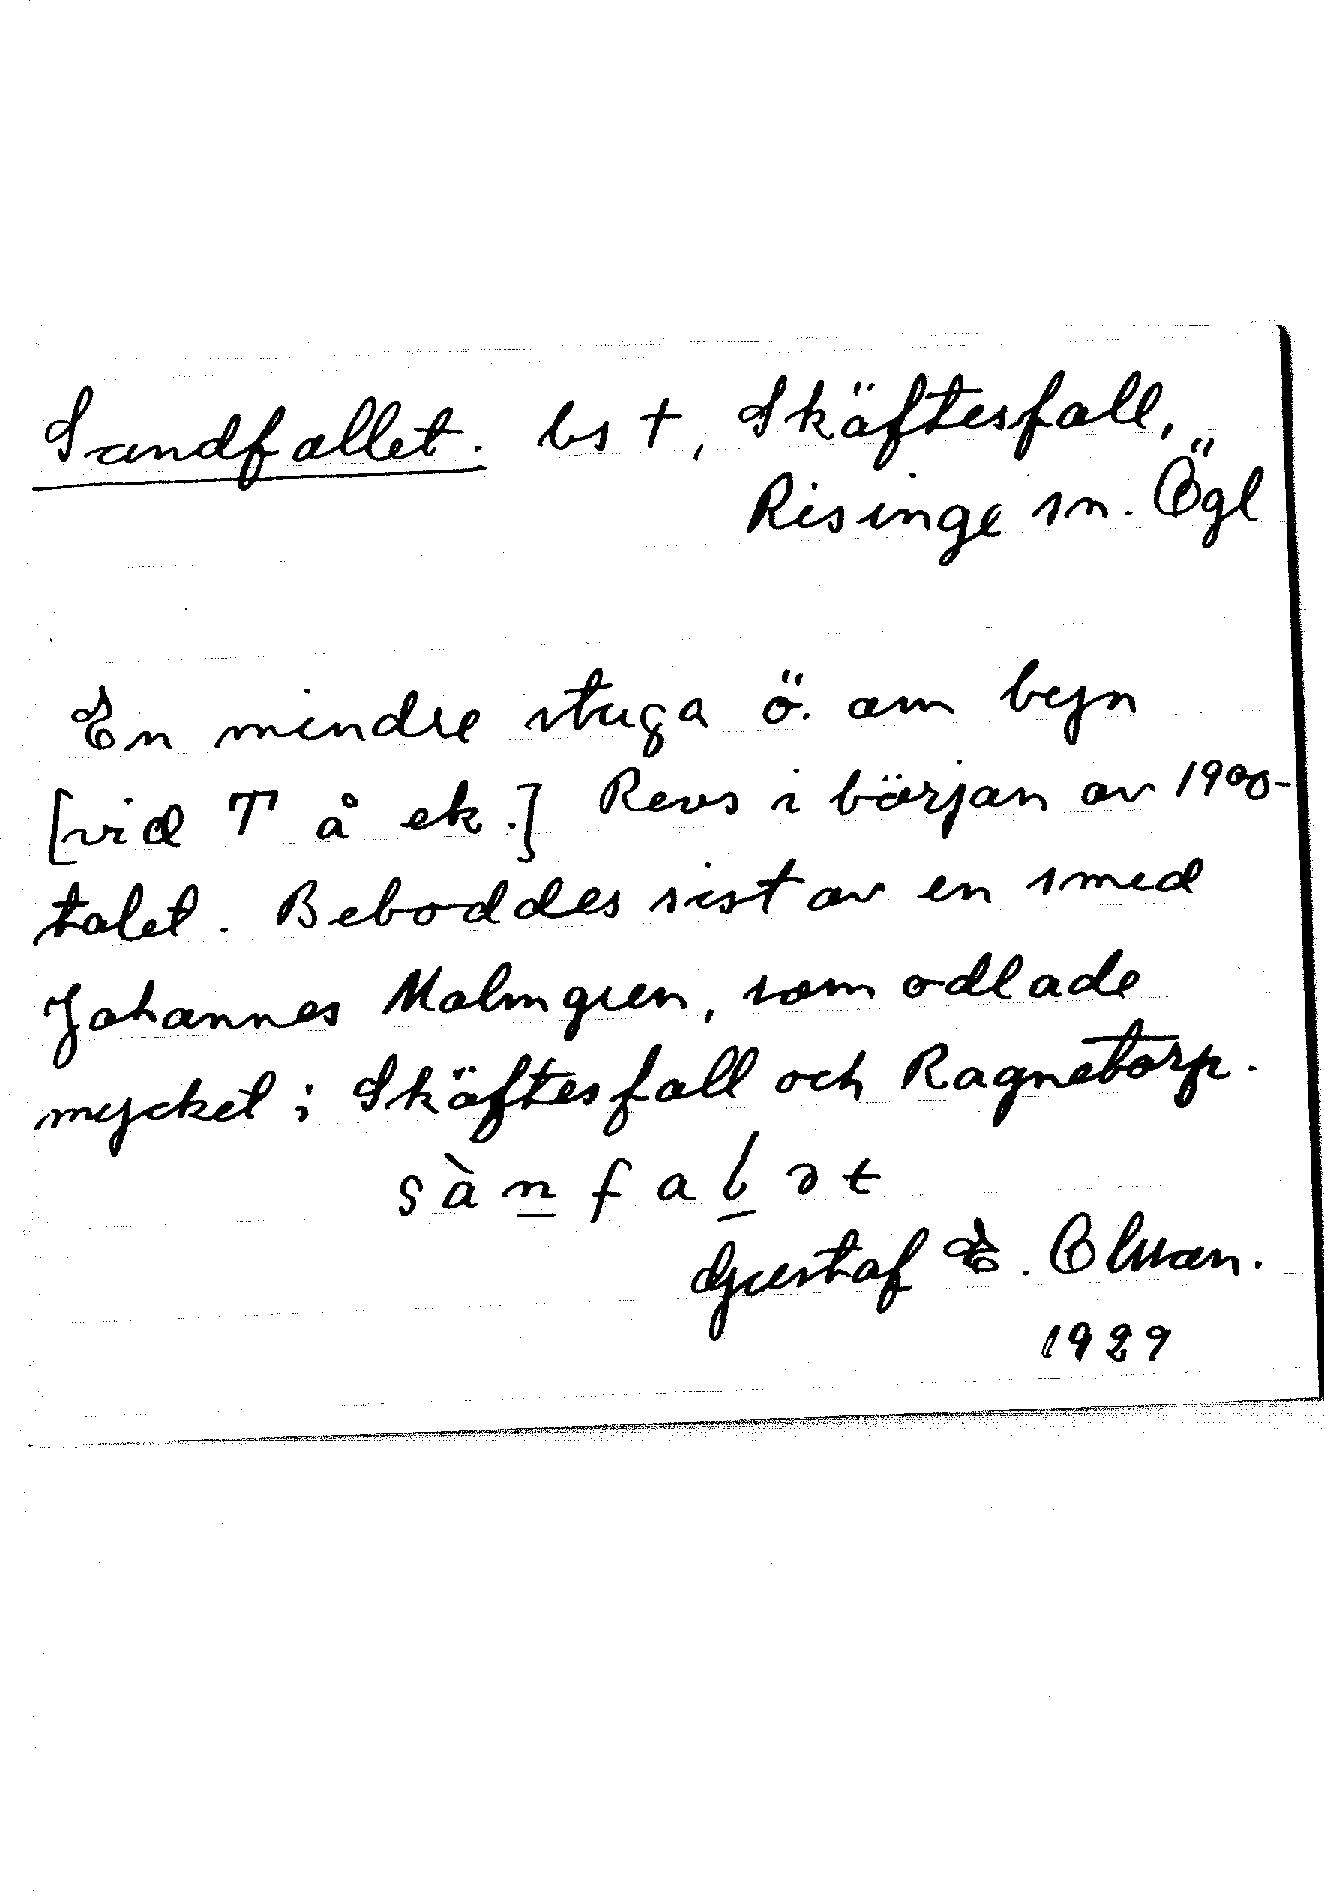 Sandfallet. bs †, Skäftesfall,
Risinge sn. Ögl
En mindre stuga ö. om byn
[vid T å ek.] Revs i början av 1900-
talet. Beboddes sist av en smed
Johannes Malmgren, som odlade
mycket i Skäftesfall och Ragnetorp.
sànfalət
Gustaf E. Olsson.
1929